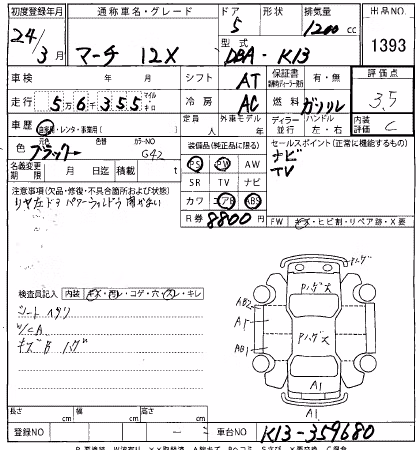 初度登録年月 通称車名・グレード ドア 形状 排気量 出品NO
24/3月 マーチ 12X 5 1200cc 1393
型式 DBA-K13
車検 年 月 シフト AT 保証書 有・無 評価点 3.5
走行 56355 マイル キロ 冷房 AC 燃料 ガソリン
定員 人 外車モデル 年 ディーラー 並行 ハンドル 左・右 内装評価 C
車歴 自家用・レンタ・事業用( )
色 元色 ブラック 色替 カラーNO G42
装備品(純正品に限る) セールスポイント(正常に機能するもの)
PS PW AW ナビ
SR TV ナビ TV
カワ エアB ABS
名義変更期限 月 日 積載 t
R券 8800円
注意事項(欠品・修復・不具合箇所および状態)
リヤ左ドア パワーウィンドウ 開かない
FW キズ・ヒビ割・リペア跡・X要
検査員記入 内装 キズ・汚レ・コゲ・穴・スレ・キレ
シート ヨゴレ
キズB ハゲ
Pハゲ大
Pハゲ大
AB2
A1
AB1
A1
A1
長さ cm 幅 cm 高さ cm
登録NO ー 車台NO K13-359680